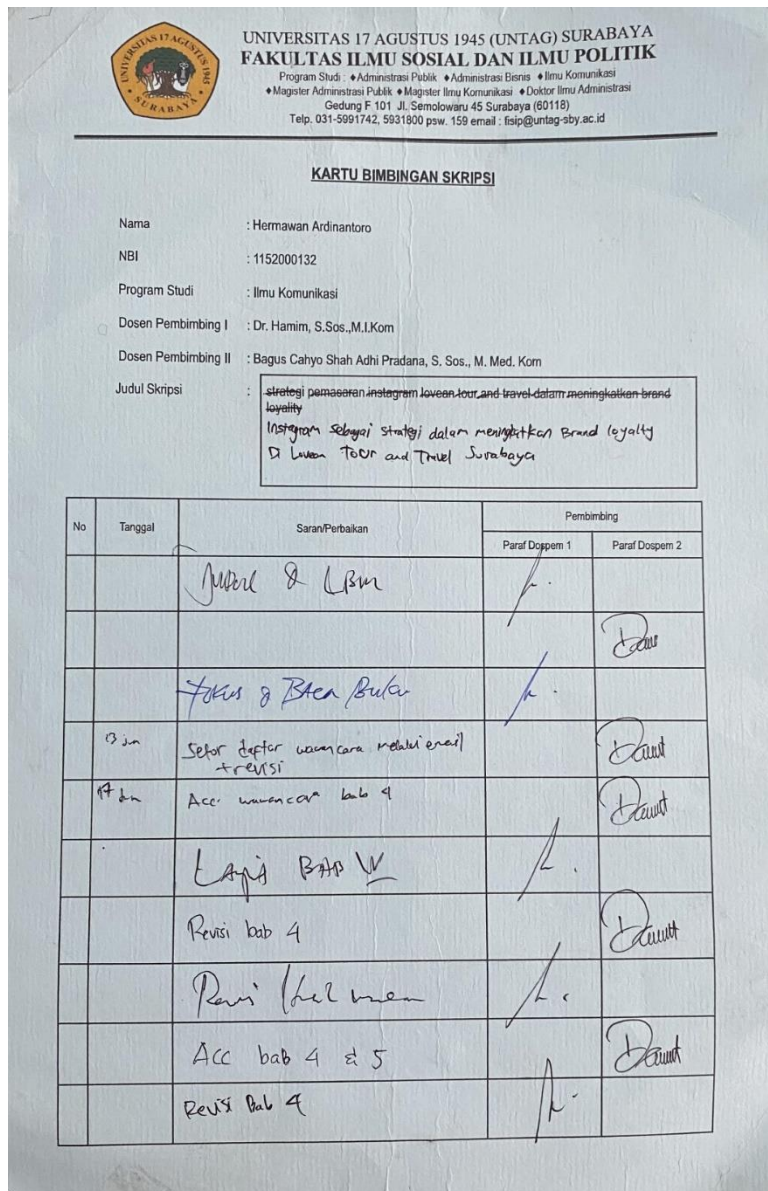 UNIVERSITAS 17 AGUSTUS 1945
SURABAYA
UNIVERSITAS 17 AGUSTUS 1945 (UNTAG) SURABAYA
FAKULTAS ILMU SOSIAL DAN ILMU POLITIK
Program Studi : ♦Administrasi Publik ♦Administrasi Bisnis ♦Ilmu Komunikasi
♦Magister Administrasi Publik ♦Magister Ilmu Komunikasi ♦Doktor Ilmu Administrasi
Gedung F 101 Jl. Semolowaru 45 Surabaya (60118)
Telp. 031-5991742, 5931800 psw. 159 email : fisip@untag-sby.ac.id
KARTU BIMBINGAN SKRIPSI
Nama : Hermawan Ardinantoro
NBI : 1152000132
Program Studi : Ilmu Komunikasi
Dosen Pembimbing I : Dr. Hamim, S.Sos.,M.I.Kom
Dosen Pembimbing II : Bagus Cahyo Shah Adhi Pradana, S. Sos., M. Med. Kom
Judul Skripsi : strategi pemasaran instagram lovean tour and travel dalam meningkatkan brand
loyality
Instagram sebagai strategi dalam meningkatkan Brand loyalty
Di Lovean Tour and Travel Surabaya
No Tanggal Saran/Perbaikan Pembimbing
Paraf Dospem 1 Paraf Dospem 2
& LBM
Fokus & BAca Buku
13 jun Setor daftar wawancara melalui email
+ revisi
17 jun Acc wawancara bab 4
BAB IV
Revisi bab 4
Acc bab 4 & 5
Revisi Bab 4